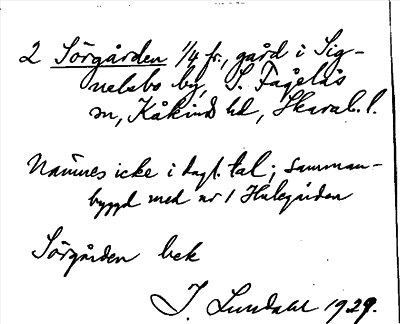 2 Sörgården 1/4 fr., gård i Sig-
nelsbo by, S. Fågelås
sn, Kåkinds hd, Skarab. l.
Nämnes icke i dagl. tal; samman-
byggd med nr 1 Hulegården
Sörgården bek
J. Lundahl 1929.